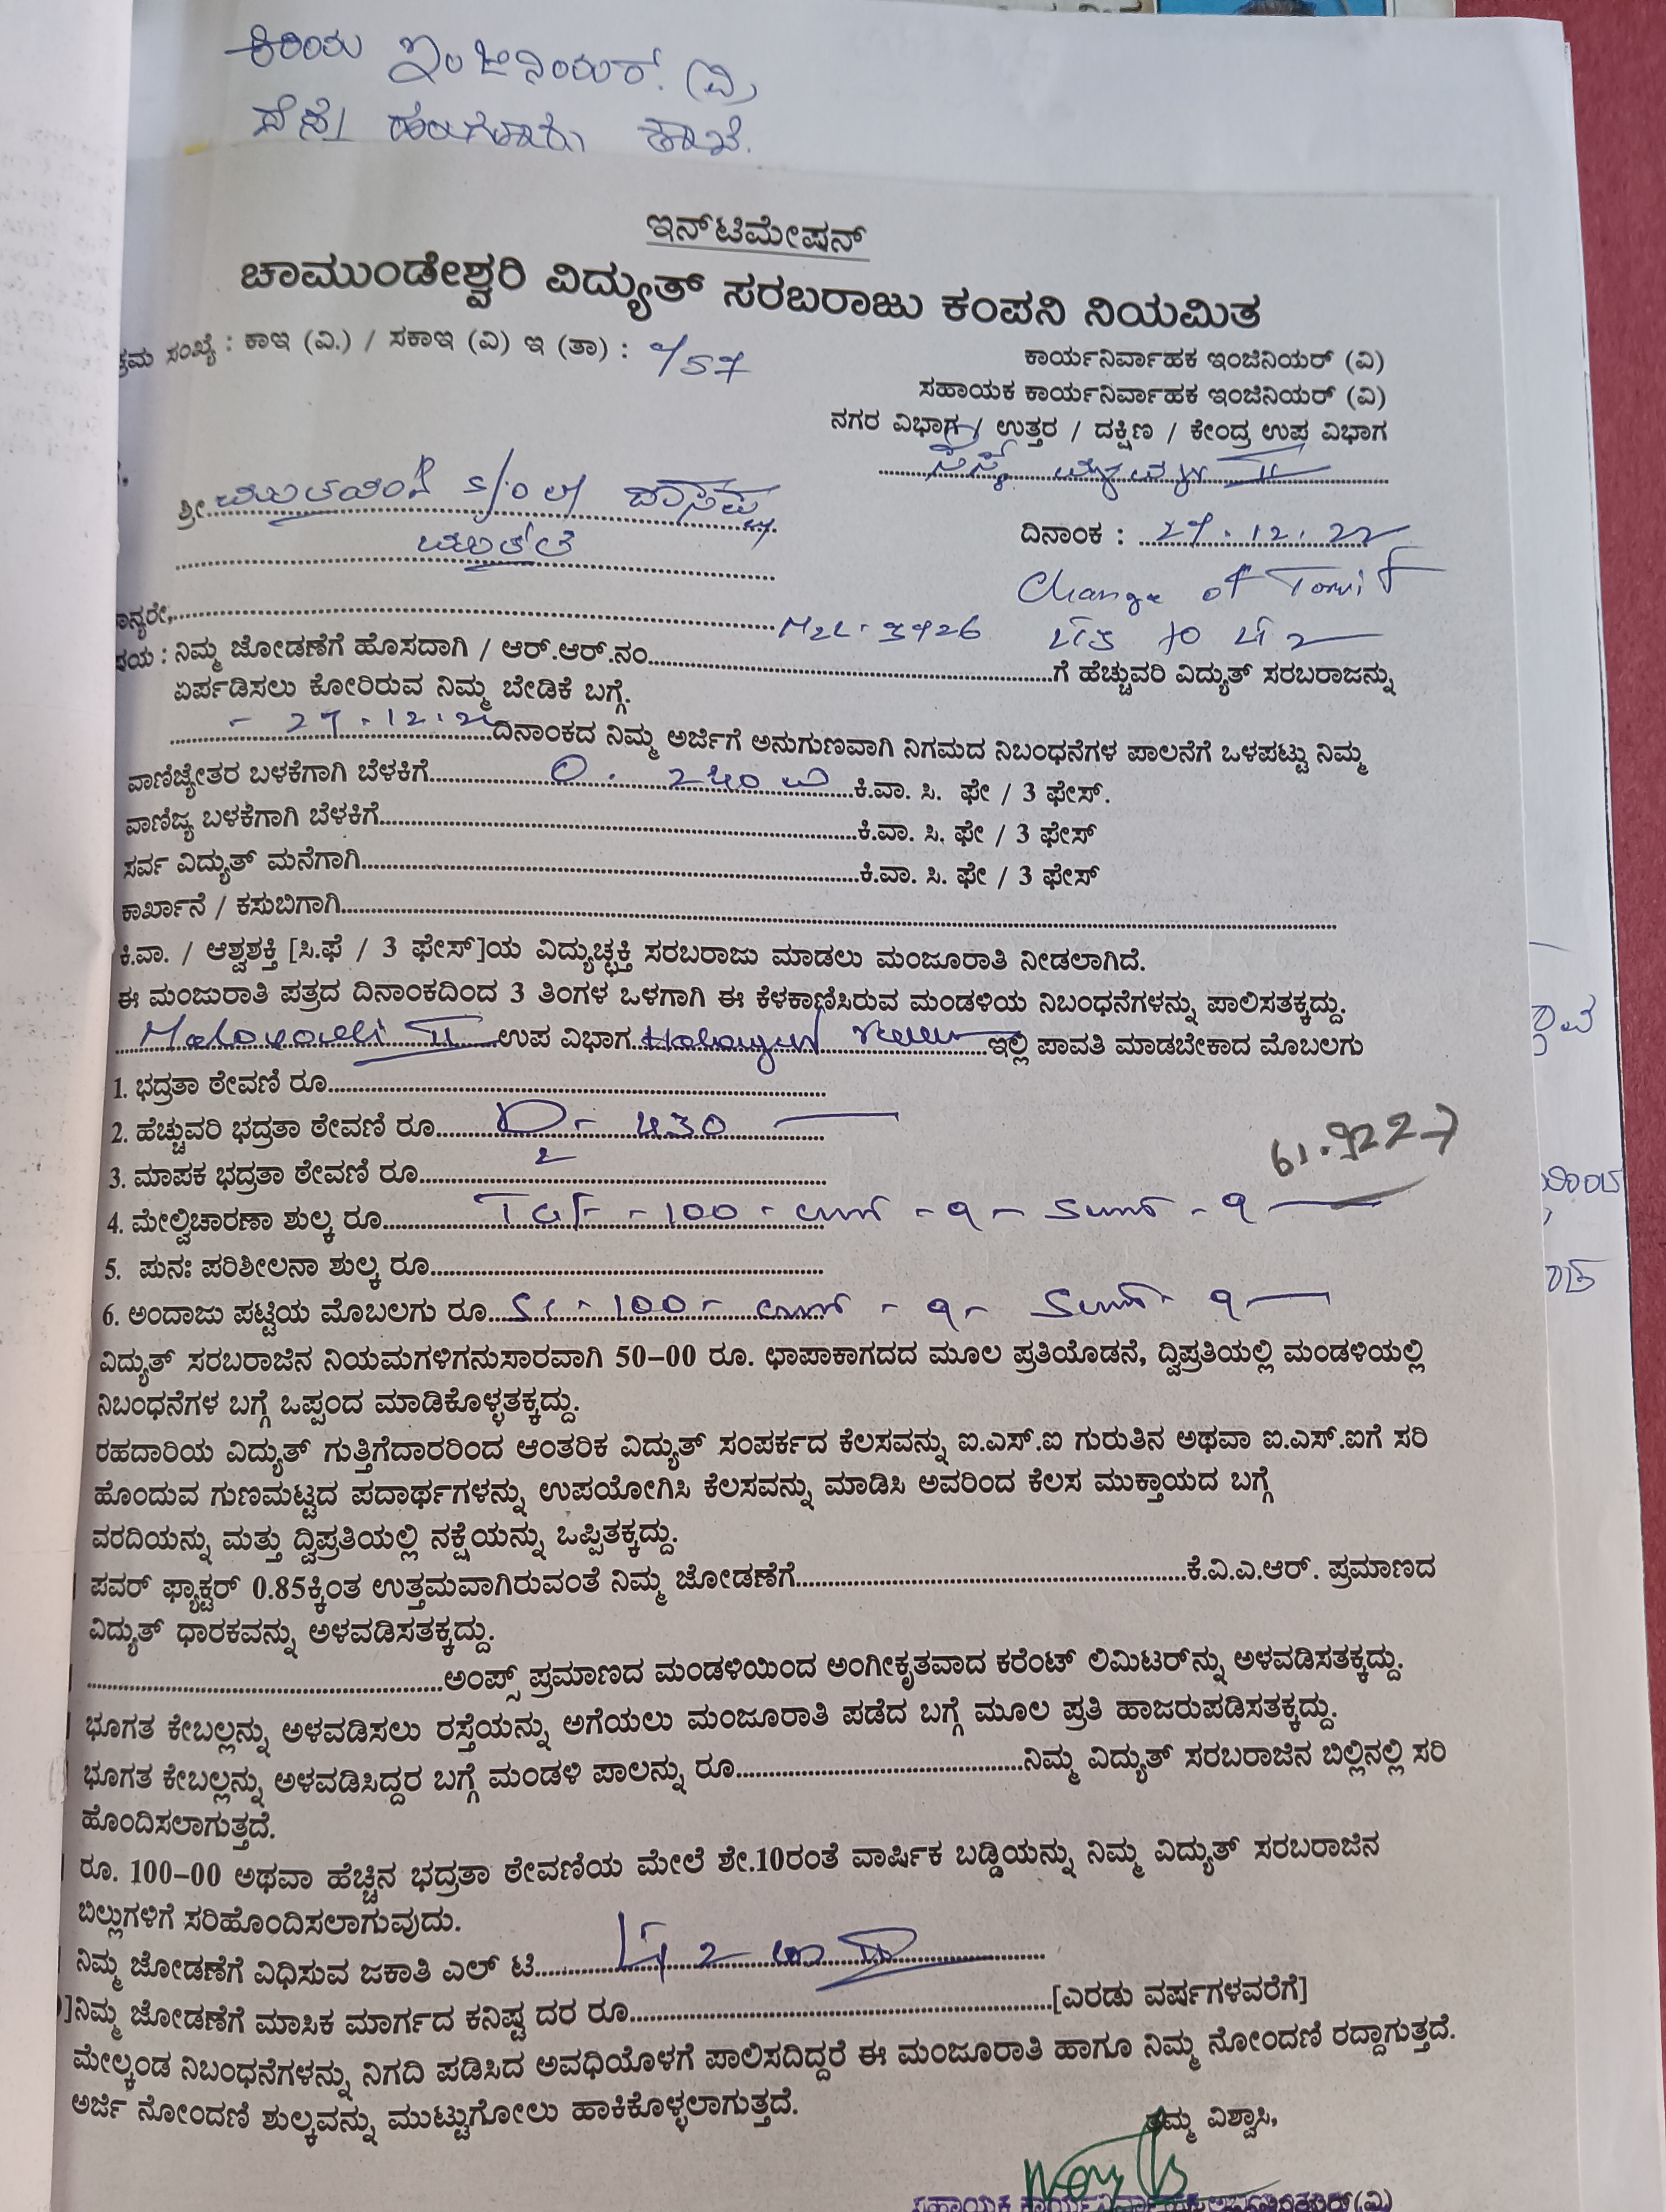 ಕಿರಿಯ ಇಂಜಿನಿಯರ್. (ವಿ)
ಹಲಗೂರು ಶಾಖೆ.
ಇನ್‌ಟಿಮೇಷನ್
ಚಾಮುಂಡೇಶ್ವರಿ ವಿದ್ಯುತ್ ಸರಬರಾಜು ಕಂಪನಿ ನಿಯಮಿತ
ಕ್ರಮ ಸಂಖ್ಯೆ : ಕಾಇ (ವಿ.) / ಸಕಾಇ (ವಿ) ಇ (ತಾ) :
ಕಾರ್ಯನಿರ್ವಾಹಕ ಇಂಜಿನಿಯರ್ (ವಿ)
ಸಹಾಯಕ ಕಾರ್ಯನಿರ್ವಾಹಕ ಇಂಜಿನಿಯರ್ (ವಿ)
ನಗರ ವಿಭಾಗ / ಉತ್ತರ / ದಕ್ಷಿಣ / ಕೇಂದ್ರ ಉಪ ವಿಭಾಗ
ಶ್ರೀ S/o
ದಿನಾಂಕ : 27.12.22
Change of Tarrif
ಾನ್ಯರೇ,
ಷಯ : ನಿಮ್ಮ ಜೋಡಣೆಗೆ ಹೊಸದಾಗಿ / ಆರ್.ಆರ್.ನಂ. ಗೆ ಹೆಚ್ಚುವರಿ ವಿದ್ಯುತ್ ಸರಬರಾಜನ್ನು
ಏರ್ಪಡಿಸಲು ಕೋರಿರುವ ನಿಮ್ಮ ಬೇಡಿಕೆ ಬಗ್ಗೆ.
27.12.22 ದಿನಾಂಕದ ನಿಮ್ಮ ಅರ್ಜಿಗೆ ಅನುಗುಣವಾಗಿ ನಿಗಮದ ನಿಬಂಧನೆಗಳ ಪಾಲನೆಗೆ ಒಳಪಟ್ಟು ನಿಮ್ಮ
ವಾಣಿಜ್ಯೇತರ ಬಳಕೆಗಾಗಿ ಬೆಳಕಿಗೆ 0.240 ಕಿ.ವಾ. ಸಿ. ಫೇ / 3 ಫೇಸ್.
ವಾಣಿಜ್ಯ ಬಳಕೆಗಾಗಿ ಬೆಳಕಿಗೆ ಕಿ.ವಾ. ಸಿ. ಫೇ / 3 ಫೇಸ್
ಸರ್ವ ವಿದ್ಯುತ್ ಮನೆಗಾಗಿ ಕಿ.ವಾ. ಸಿ. ಫೇ / 3 ಫೇಸ್
ಕಾರ್ಖಾನೆ / ಕಸುಬಿಗಾಗಿ
ಕಿ.ವಾ. / ಆಶ್ವಶಕ್ತಿ [ಸಿ.ಫೆ / 3 ಫೇಸ್]ಯ ವಿದ್ಯುಚ್ಛಕ್ತಿ ಸರಬರಾಜು ಮಾಡಲು ಮಂಜೂರಾತಿ ನೀಡಲಾಗಿದೆ.
ಈ ಮಂಜುರಾತಿ ಪತ್ರದ ದಿನಾಂಕದಿಂದ 3 ತಿಂಗಳ ಒಳಗಾಗಿ ಈ ಕೆಳಕಾಣಿಸಿರುವ ಮಂಡಳಿಯ ನಿಬಂಧನೆಗಳನ್ನು ಪಾಲಿಸತಕ್ಕದ್ದು.
II ಉಪ ವಿಭಾಗ ಇಲ್ಲಿ ಪಾವತಿ ಮಾಡಬೇಕಾದ ಮೊಬಲಗು
1. ಭದ್ರತಾ ಠೇವಣಿ ರೂ.
2. ಹೆಚ್ಚುವರಿ ಭದ್ರತಾ ಠೇವಣಿ ರೂ. 430
3. ಮಾಪಕ ಭದ್ರತಾ ಠೇವಣಿ ರೂ.
4. ಮೇಲ್ವಿಚಾರಣಾ ಶುಲ್ಕ ರೂ. 100 - 9 - 9
5. ಪುನಃ ಪರಿಶೀಲನಾ ಶುಲ್ಕ ರೂ.
6. ಅಂದಾಜು ಪಟ್ಟಿಯ ಮೊಬಲಗು ರೂ. 100 - 9 - 9
ವಿದ್ಯುತ್ ಸರಬರಾಜಿನ ನಿಯಮಗಳಿಗನುಸಾರವಾಗಿ 50–00 ರೂ. ಛಾಪಾಕಾಗದದ ಮೂಲ ಪ್ರತಿಯೊಡನೆ, ದ್ವಿಪ್ರತಿಯಲ್ಲಿ ಮಂಡಳಿಯಲ್ಲಿ
ನಿಬಂಧನೆಗಳ ಬಗ್ಗೆ ಒಪ್ಪಂದ ಮಾಡಿಕೊಳ್ಳತಕ್ಕದ್ದು.
ರಹದಾರಿಯ ವಿದ್ಯುತ್ ಗುತ್ತಿಗೆದಾರರಿಂದ ಆಂತರಿಕ ವಿದ್ಯುತ್ ಸಂಪರ್ಕದ ಕೆಲಸವನ್ನು ಐ.ಎಸ್.ಐ ಗುರುತಿನ ಅಥವಾ ಐ.ಎಸ್.ಐಗೆ ಸರಿ
ಹೊಂದುವ ಗುಣಮಟ್ಟದ ಪದಾರ್ಥಗಳನ್ನು ಉಪಯೋಗಿಸಿ ಕೆಲಸವನ್ನು ಮಾಡಿಸಿ ಅವರಿಂದ ಕೆಲಸ ಮುಕ್ತಾಯದ ಬಗ್ಗೆ
ವರದಿಯನ್ನು ಮತ್ತು ದ್ವಿಪ್ರತಿಯಲ್ಲಿ ನಕ್ಷೆಯನ್ನು ಒಪ್ಪಿತಕ್ಕದ್ದು.
ಪವರ್ ಫ್ಯಾಕ್ಟರ್ 0.85ಕ್ಕಿಂತ ಉತ್ತಮವಾಗಿರುವಂತೆ ನಿಮ್ಮ ಜೋಡಣೆಗೆ ಕೆ.ವಿ.ಎ.ಆರ್. ಪ್ರಮಾಣದ
ವಿದ್ಯುತ್ ಧಾರಕವನ್ನು ಅಳವಡಿಸತಕ್ಕದ್ದು.
ಅಂಪ್ಸ್ ಪ್ರಮಾಣದ ಮಂಡಳಿಯಿಂದ ಅಂಗೀಕೃತವಾದ ಕರೆಂಟ್ ಲಿಮಿಟರ್‌ನ್ನು ಅಳವಡಿಸತಕ್ಕದ್ದು.
ಭೂಗತ ಕೇಬಲ್ಲನ್ನು ಅಳವಡಿಸಲು ರಸ್ತೆಯನ್ನು ಅಗೆಯಲು ಮಂಜೂರಾತಿ ಪಡೆದ ಬಗ್ಗೆ ಮೂಲ ಪ್ರತಿ ಹಾಜರುಪಡಿಸತಕ್ಕದ್ದು.
ಭೂಗತ ಕೇಬಲ್ಲನ್ನು ಅಳವಡಿಸಿದ್ದರ ಬಗ್ಗೆ ಮಂಡಳಿ ಪಾಲನ್ನು ರೂ. ನಿಮ್ಮ ವಿದ್ಯುತ್ ಸರಬರಾಜಿನ ಬಿಲ್ಲಿನಲ್ಲಿ ಸರಿ
ಹೊಂದಿಸಲಾಗುತ್ತದೆ.
ರೂ. 100–00 ಅಥವಾ ಹೆಚ್ಚಿನ ಭದ್ರತಾ ಠೇವಣಿಯ ಮೇಲೆ ಶೇ.10ರಂತೆ ವಾರ್ಷಿಕ ಬಡ್ಡಿಯನ್ನು ನಿಮ್ಮ ವಿದ್ಯುತ್ ಸರಬರಾಜಿನ
ಬಿಲ್ಲುಗಳಿಗೆ ಸರಿಹೊಂದಿಸಲಾಗುವುದು.
ನಿಮ್ಮ ಜೋಡಣೆಗೆ ವಿಧಿಸುವ ಜಕಾತಿ ಎಲ್ ಟಿ
]ನಿಮ್ಮ ಜೋಡಣೆಗೆ ಮಾಸಿಕ ಮಾರ್ಗದ ಕನಿಷ್ಟ ದರ ರೂ. [ಎರಡು ವರ್ಷಗಳವರೆಗೆ]
ಮೇಲ್ಕಂಡ ನಿಬಂಧನೆಗಳನ್ನು ನಿಗದಿ ಪಡಿಸಿದ ಅವಧಿಯೊಳಗೆ ಪಾಲಿಸದಿದ್ದರೆ ಈ ಮಂಜೂರಾತಿ ಹಾಗೂ ನಿಮ್ಮ ನೋಂದಣಿ ರದ್ದಾಗುತ್ತದೆ.
ಅರ್ಜಿ ನೋಂದಣಿ ಶುಲ್ಕವನ್ನು ಮುಟ್ಟುಗೋಲು ಹಾಕಿಕೊಳ್ಳಲಾಗುತ್ತದೆ.
ತಮ್ಮ ವಿಶ್ವಾಸಿ,